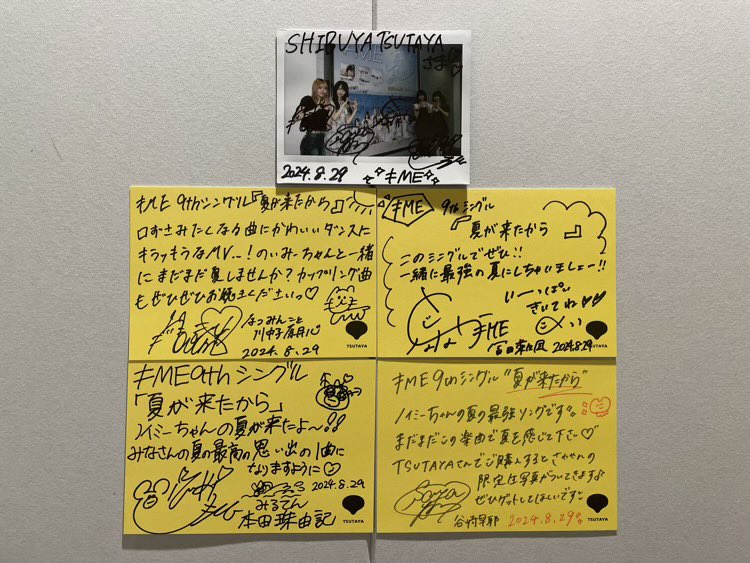 SHIBUYA TSUTAYA
さま
≠ME
2024.8.29
≠ME
≠ME 9thシングル『夏が来たから』
口ずさみたくなる曲にかわいいダンスに
キラッキラなMV…!のいみーちゃんと一緒
にまだまだ夏しませんか?カップリング曲
もぜひぜひお聴きくださいっ♡
なつみんこと
川中子奈月心
2024.8.29
TSUTAYA
≠ME 9thシングル
『夏が来たから』
このシングルでぜひ!!
一緒に最強の夏にしちゃいましょー!!
いーっぱい
きいてね♡♡
≠ME
冨田菜々風 2024.8.29
TSUTAYA
≠ME 9thシングル
「夏が来たから」
ノイミーちゃんの夏が来たよ〜!!
みなさんの夏の最高の思い出の1曲に
なりますように♡
2024.8.29
みるてん
本田珠由記
TSUTAYA
≠ME 9thシングル"夏が来たから"
ノイミーちゃんの夏の最強ソングです。
まだまだこの楽曲で夏を感じて下さい♡
TSUTAYAさんでご購入するとさややの
限定生写真がついてきます♪
ぜひゲットしてほしいです
谷崎早耶 2024.8.29
TSUTAYA